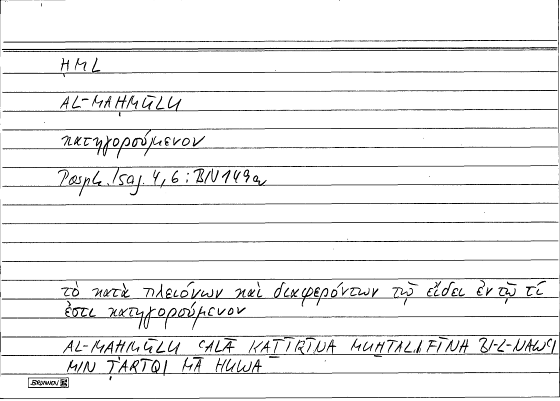 ḤML
AL-MAḤMŪLU
κατηγορούμενον
Porph. Isag. 4,6 : BN 149a
τὸ κατὰ πλειόνων καὶ διαφερόντων τῷ εἴδει ἐν τῷ τί
ἐστι κατηγορούμενον
AL-MAḤMŪLU ʿALĀ KAṮĪRĪNA MUḪTALIFĪNA BI-L-NAWʿI
MIN ṬARĪQI MĀ HUWA
BRUNNEN